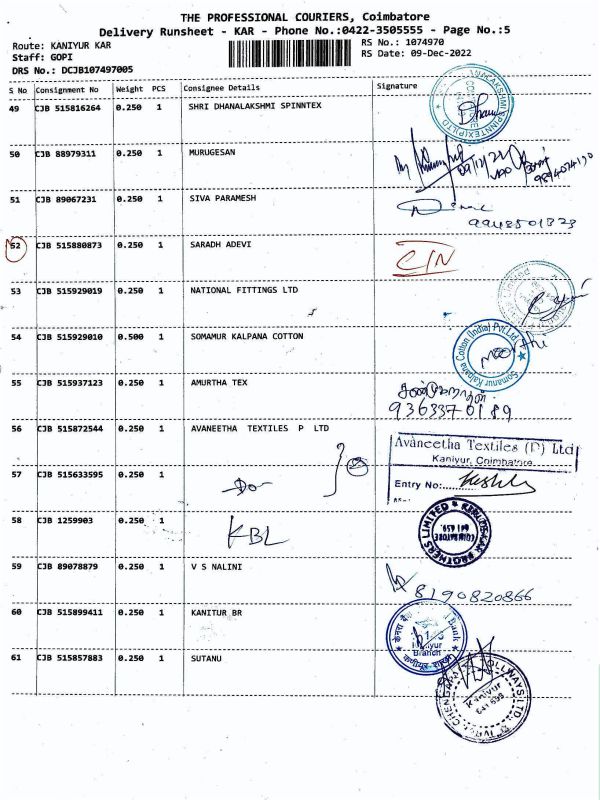 THE PROFESSIONAL COURIERS, Coimbatore
Delivery Runsheet - KAR - Phone No.:0422-3505555 - Page No.:5
Route: KANIYUR KAR
RS No.: 1074970
Staff: GOPI
RS Date: 09-Dec-2022
DRS No.: DCJB107497005
S No Consignment No Weight PCS Consignee Details Signature
49 CJB 515816264 0.250 1 SHRI DHANALAKSHMI SPINNTEX
50 CJB 88979311 0.250 1 MURUGESAN
51 CJB 89067231 0.250 1 SIVA PARAMESH
52 CJB 515880873 0.250 1 SARADH ADEVI
53 CJB 515929019 0.250 1 NATIONAL FITTINGS LTD
54 CJB 515929010 0.500 1 SOMAMUR KALPANA COTTON
Somanur Kalpana Cotton (India) Pvt.Ltd
55 CJB 515937123 0.250 1 AMURTHA TEX
9363370189
56 CJB 515872544 0.250 1 AVANEETHA TEXTILES P LTD
Avaneetha Textiles (P) Ltd
Kaniyur, Coimbatore.
57 CJB 515633595 0.250 1 -Do-
Entry No:
58 CJB 1259903 0.250 1 KBL
BROTHERS LIMITED
COIMBATORE
641 659
59 CJB 89078879 0.250 1 V S NALINI
8190820866
60 CJB 515899411 0.250 1 KANITUR BR
Bank
Kaniyur
Branch
61 CJB 515857883 0.250 1 SUTANU
Kaniyur
641 659